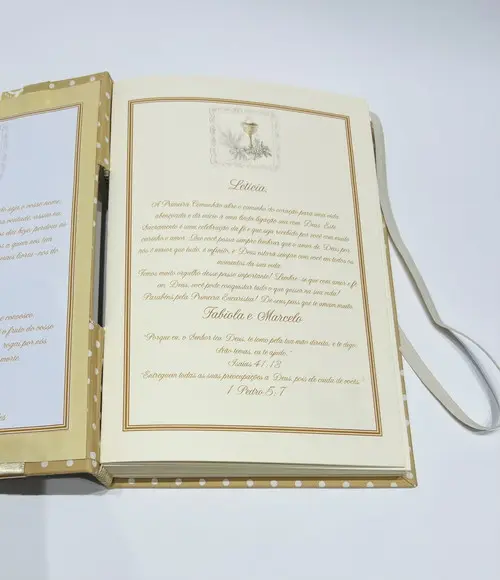 Letícia,
A Primeira Comunhão abre o caminho do coração para uma vida
abençoada e dá início a uma linda ligação sua com Deus. Este
Sacramento é uma celebração da fé e que seja recebido por você com muito
carinho e amor. Que você possa sempre lembrar que o amor de Deus por
nós é maior que tudo, é infinito, e Deus estará sempre com você em todos os
momentos da sua vida.
Temos muito orgulho desse passo importante! Lembre-se que com amor e fé
em Deus, você pode conquistar tudo o que quiser na sua vida!
Parabéns pela Primeira Eucaristia! De seus pais que te amam muito,
Fabíola e Marcelo
"Porque eu, o Senhor teu Deus, te tomo pela tua mão direita; e te digo:
Não temas, eu te ajudo."
Isaías 41:13
"Entreguem todas as suas preocupações a Deus, pois ele cuida de vocês."
1 Pedro 5:7